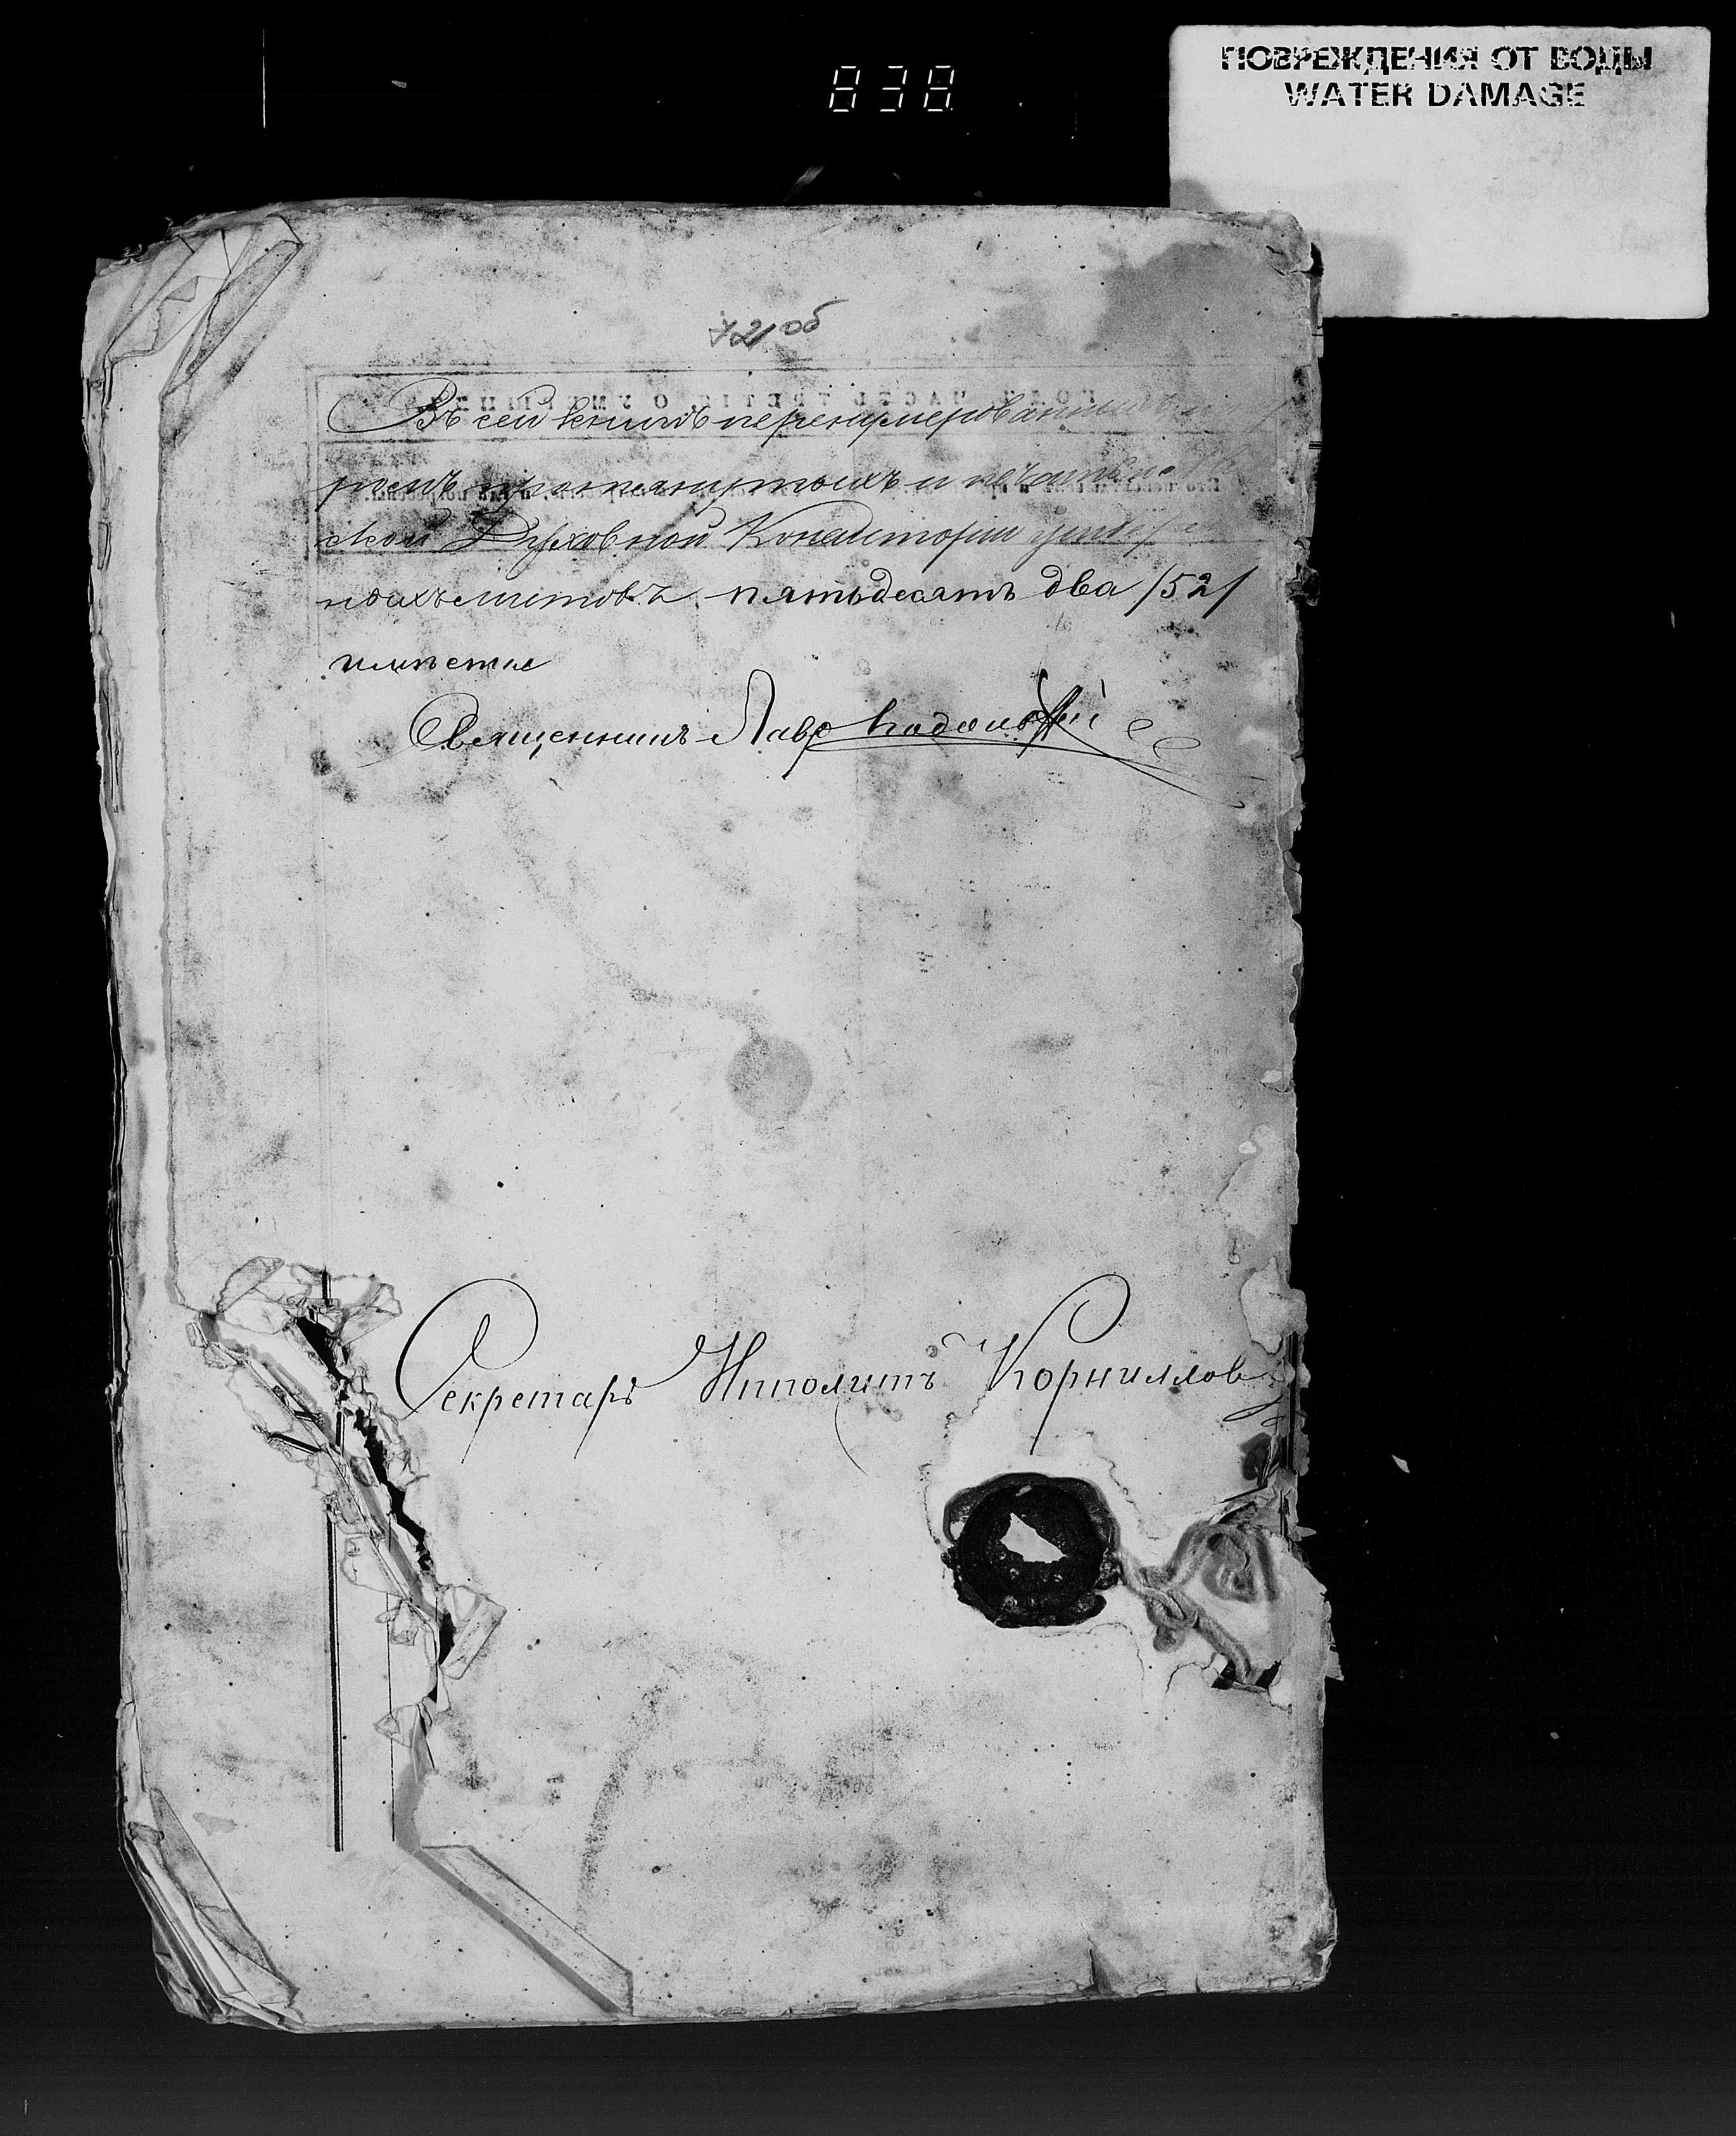 838
ПОВРЕЖДЕНИЯ ОТ ВОДЫ
WATER DAMAGE
721об
Въ сей книгѣ перенумерованныхъ
ромъ протянутыхъ и печатью
ской Духовной Консисторіи
ныхъ листовъ пятьдесятъ два /52/
Священникъ Лавръ
Секретарь Ипполитъ Корниллов